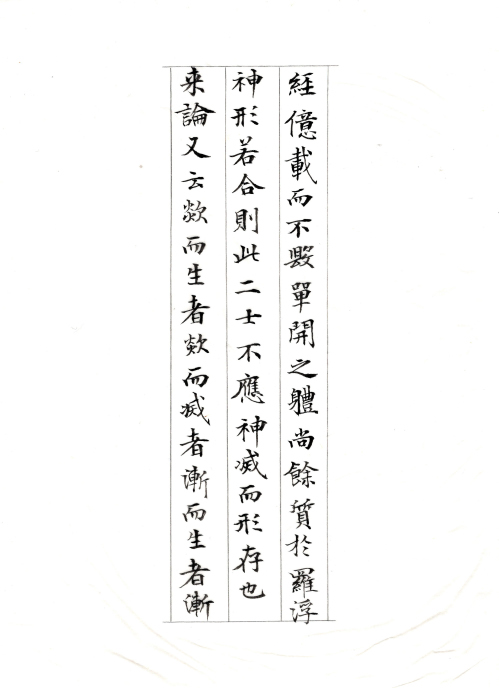 經億載而不毀單開之軆尚餘質於羅浮
神形若合則此二士不應神滅而形存也
来論又云歘而生者歘而滅者漸而生者漸